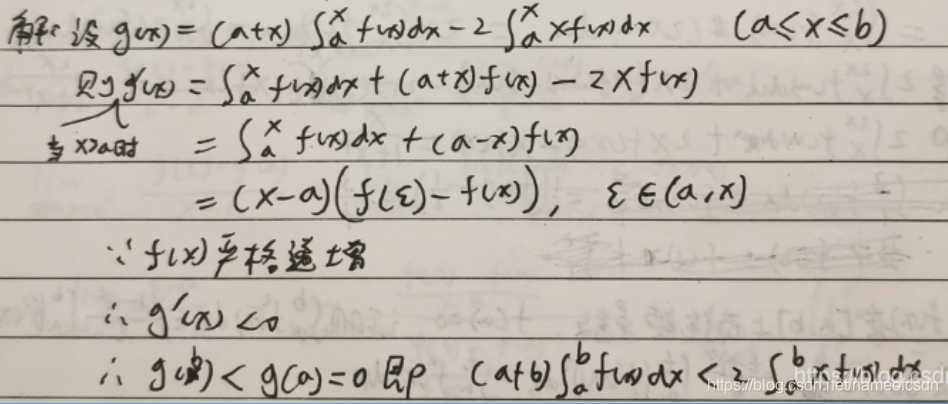 解: 设 g(x) = (a+x) ∫ₐˣ f(x)dx − 2 ∫ₐˣ xf(x)dx (a≤x≤b)
则 g'(x) = ∫ₐˣ f(x)dx + (a+x)f(x) − 2xf(x)
当 x>a时 = ∫ₐˣ f(x)dx + (a−x)f(x)
= (x−a)(f(ε)−f(x)), ε∈(a,x)
∵ f(x)严格递增
∴ g'(x)<0
∴ g(b)<g(a)=0 即 (a+b)∫ₐᵇ f(x)dx < 2∫ₐᵇ xf(x)dx
https://blog.csdn.net/nameofcsdn